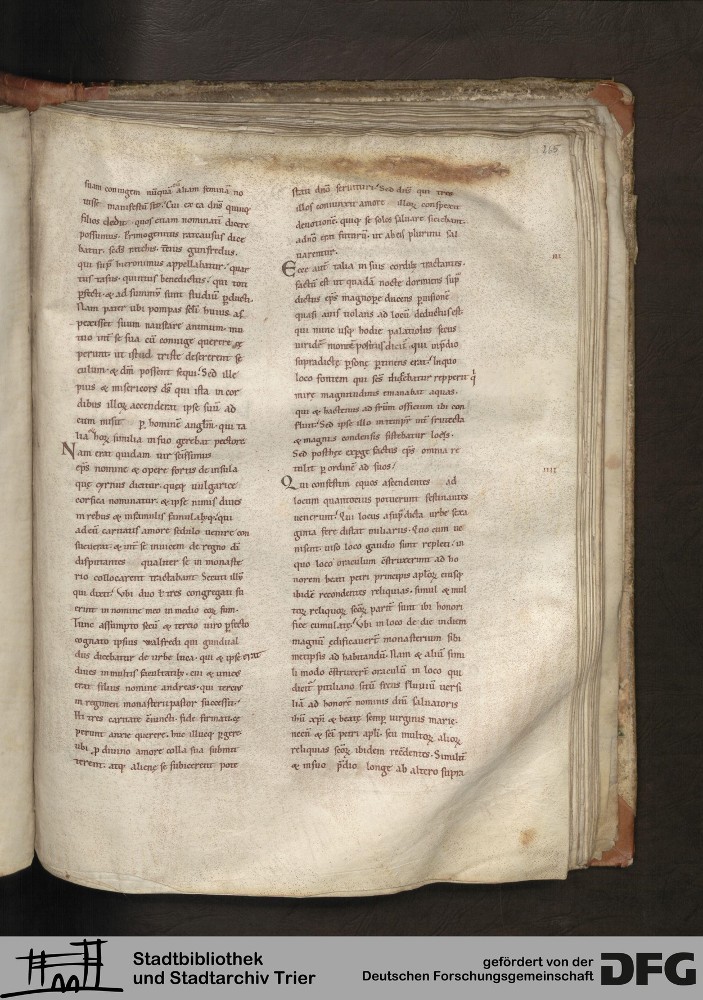 265
suam coniugem nũquã aliam feminã no
uisse manifestũ
filios dedit quos etiam nominati dicere
possumus. Primogenitus ratcausus dice
batur. sedς tachis. tcius gunfredus.
qui sup hieronimus appellabatur. quar
tus tasus. quintus benedictus. qui ton
pfecti. & ad summũ sunt studiũ pducti.
Nam pater ubi pompas scłi huius as
pexisset suum nauitare animum. mu
tuo int se sua cũ coniuge querere
perunt ut istud triste desererent se
culum. & dm̃ possent sequi. Sed ille
pius & misericors ds̃ qui ista in cor
dibus illoꝝ accenderat ipse suũ ad
eum misit p hominẽ anglm̃. qui ta
lia hoꝝ similia in suo gerebat pectore.
Nam erat quidam uir
eps̃ nomine & opere fortis de insula
quę cyrnus dicitur. quęq uulgarice
corsica nominatur. & ipse nimis diues
in rebus & in famulis famulabꝰq. qui
ad eũ caritatis amore sedulo uenire con
sueuerat. & int se inuicem de regno di
disputantes qualiter se in monaste
rio collocarent tractabant. Securi illiꝰ
qui dixit. Ubi duo ł tres congregati fu
erint in nomine meo in medio eoꝝ sum.
Tunc assumpto secũ & tercio uiro pfecto
cognato ipsius walfredi qui gundual
dus dicebatur de urbe luca. qui & ipse erat
diues in multis facultatibꝰ. cui & unicꝰ
erat filius nomine andreas. qui tercius
in regimen monasterii pastor successit.
Hi tres caritate firmati
perunt anxie querere. huc illucq pgere.
ubi p diuino amore colla sua submit
terent. atq alienę se subicerent pote
stati dñi seruituri. Sed dñs qui tres
illos coniunxit amore illoꝝ conspexit
deuotionẽ. quiq se solos saluare satebant.
a dño erat futurũ. ut ab eis plurimi sal
uarentur.
III
Ecce aut talia in suis cordibꝰ tractantes.
factũ est ut quadã nocte dormiens sup
dictus eps̃ magnopę ducens puisionẽ
quasi auis uolans ad locũ deductus est.
qui nunc usq hodie palatiolus secus
uiridẽ montẽ positus dicit. qui in pdio
supradictę psonę ptinens erat. In quo
loco fontem qui ses thesebatur repperit q
mire magnitudinis emanabat aquas.
qui & hactenus ad fr̃um officium ibi con
fluit. Sed ipse illo in tempr̃ int frutecta
& magnis condensis sistebatur locis.
Sed posthęc expgefactus eps̃ omnia re
tulit p ordinẽ ad suos.
IIII
Qui confestim equos ascendentes ad
locum quantocius potuerunt festinantes
uenerunt. Qui locus a sup dicta urbe sexa
ginta fere distat miliarus. Quo cum ue
nissent. uiso loco gaudio sunt repleti. in
quo loco oraculum cstruxerunt ad ho
norem beati petri principis aplõꝝ eiusq
ibidẽ recondentes reliquias. simul & mul
toꝝ reliquoꝝ scõꝝ parit sunt ibi honori
fice cumulatę. Ubi in loco de die in diem
magnũ edificauerẽ monasterium sibi
metipsis ad habitandũ. Nam & aliũ simi
li modo cstruxerẽ oraculũ in loco qui
dicit pitiliano sitũ secus fluuiũ uersi
liã ad honorẽ nominis dñi saluatoris
ihũ xpi & beatę semp uirginis marie.
necñ & scĩ petri apłi. seu multoꝝ alioꝝ
reliquias scõꝝ ibidem recdentes. Similit
& in suo pdio longe ab altero supra
Stadtbibliothek
und Stadtarchiv Trier
gefördert von der
Deutschen Forschungsgemeinschaft
DFG